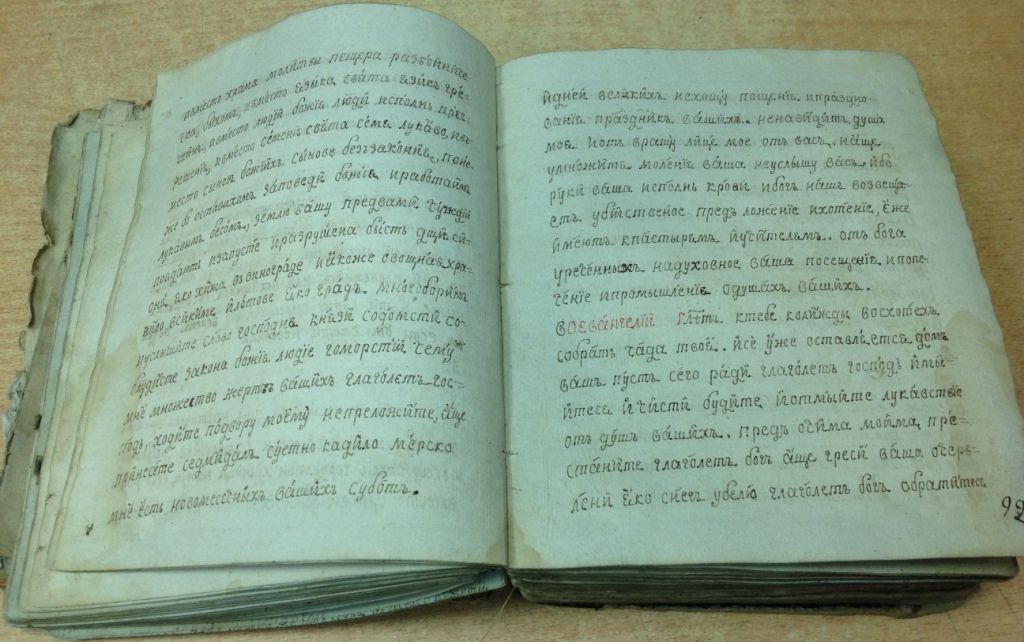 ивместо храма молитвы пещера разбойниче
ска, быхомъ, ивместо ѧзыка свѧта ѧзыкъ гре
шенъ, ивместо людїй божїе людїй исполнь прег
решенїй, ивместо семени свѧта семѧ лукаво, ив
место сыновъ божїихъ сынове беззаконїѧ, поне
же в оставихомъ заповеди божїѧ, иработаймъ
лукавымъ бесомъ, землю вашу предвами чуждїй
поѧдѧтъ изапусте иразрушена бысть дщи сї
онѧ, ѧко хижа ввинограде иѧкоже овощнаѧ хра=
вило всѧкиѧ плотове ѧко градъ. многоборимъ
иуслышите слово господне князи содомстїи со=
блудите закона божїѧ людїе гоморстїи чему
мне множество жертвъ вашихъ глаголетъ гос=
подь, ходите подвору моему непреложите, аще
принесете седмидалъ суетно кадило мерско
мне есть новомесечныхъ вашихъ суботъ.
идней великихъ нехощу пощенїѧ ипраздно=
ванїѧ праздникъ вашихъ. ненавидитъ душа
моѧ иотъ вращу лице мое отъ васъ, иаще
умножите моленїе ваша неуслышу васъ ибо
руки ваша исполнь крови ибогъ нашъ возвеща=
етъ убїйственое предъ ложенїе ихотенїе, еже
имеютъ кпастыремъ иучителемъ. отъ бога
уреченныхъ надуховное ваша посещанїе ипопе=
ченїе ипромышленїе одушахъ вашихъ.
воевангелїи глетъ. ктебе колижды восхотехъ
собрать чада твоѧ. исе уже оставлѧетсѧ домъ
вашъ пустъ сего ради глаголетъ господь измы=
йтесѧ ичисти будите иотмыйте лукавствїе
отъ душъ вашихъ. предъ очима моима, пре=
станите глаголетъ богъ аще греси ваша очерв=
лени ѧко снегъ убелю глаголетъ богъ обратитесь
92